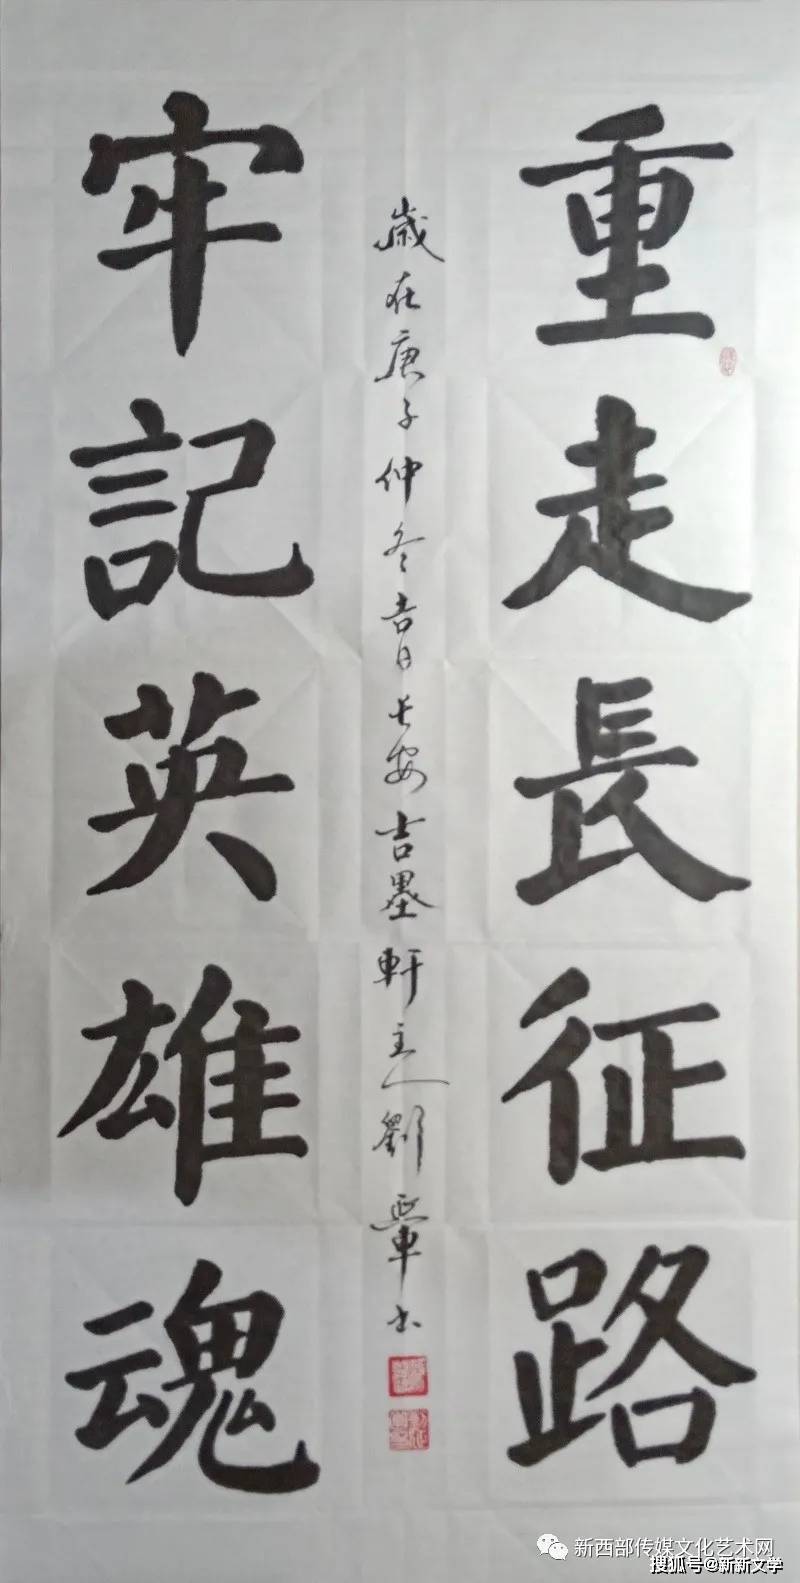 重走長征路
牢記英雄魂
歲在庚子仲冬吉日长安吉墨軒主人劉延軍书
新西部传媒文化艺术网
搜狐号@新新文学